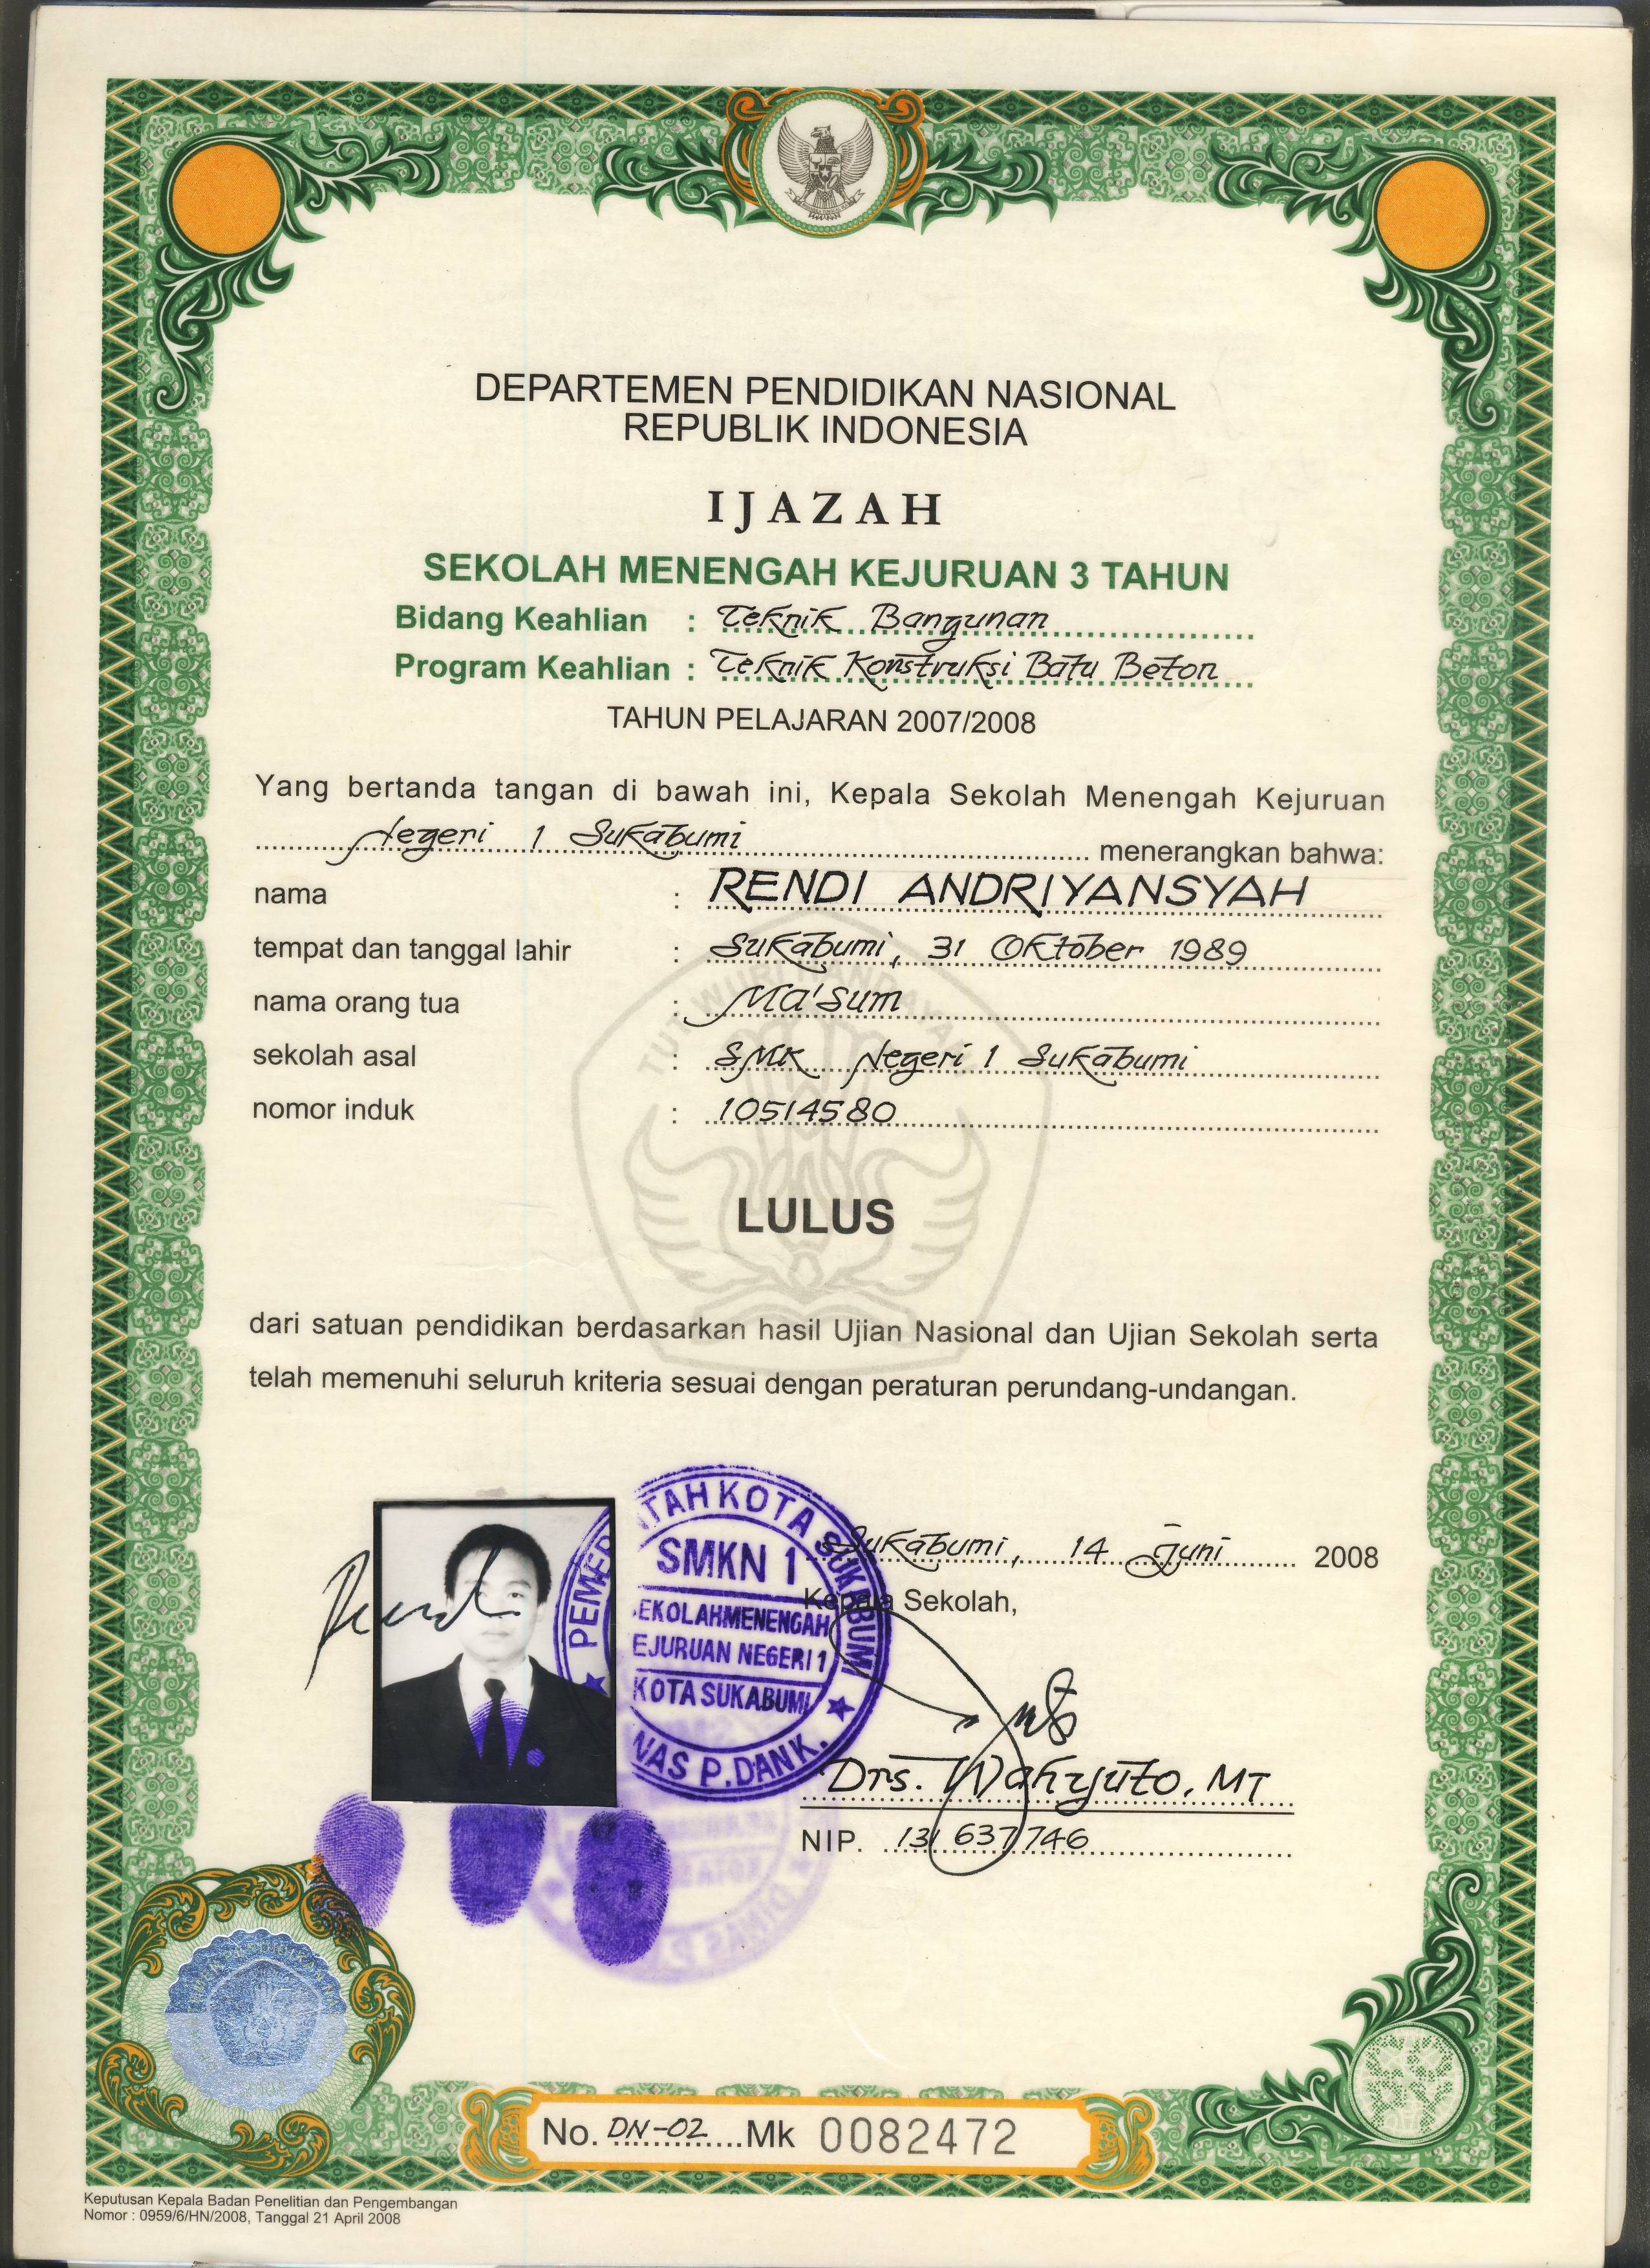 DEPARTEMEN PENDIDIKAN NASIONAL
REPUBLIK INDONESIA
IJAZAH
SEKOLAH MENENGAH KEJURUAN 3 TAHUN
Bidang Keahlian : Teknik Bangunan
Program Keahlian : Teknik Konstruksi Batu Beton
TAHUN PELAJARAN 2007/2008
Yang bertanda tangan di bawah ini, Kepala Sekolah Menengah Kejuruan
Negeri 1 Sukabumi menerangkan bahwa:
nama : RENDI ANDRIYANSYAH
tempat dan tanggal lahir : Sukabumi, 31 Oktober 1989
nama orang tua : Ma'sum
sekolah asal : SMK Negeri 1 Sukabumi
nomor induk : 10514580
TUT WURI HANDAYANI
LULUS
dari satuan pendidikan berdasarkan hasil Ujian Nasional dan Ujian Sekolah serta
telah memenuhi seluruh kriteria sesuai dengan peraturan perundang-undangan.
PEMER TAH KOTA SUKABUMI
SMKN 1
EKOLAH MENENGAH
EJURUAN NEGERI 1
KOTA SUKABUMI
NAS P. DAN K.
Sukabumi, 14 Juni 2008
Kepala Sekolah,
Drs. Wahyuto, MT
NIP. 131 637 746
No. DN-02 Mk 0082472
Keputusan Kepala Badan Penelitian dan Pengembangan
Nomor : 0959/6/HN/2008, Tanggal 21 April 2008